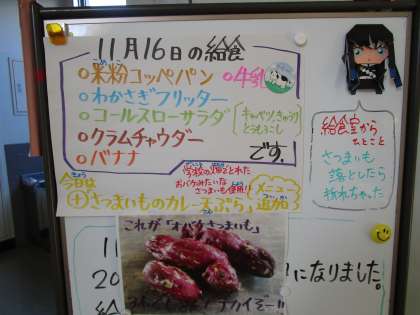 11月16日の給食
○米粉コッペパン ○牛乳
○わかさぎフリッター
○コールスローサラダ
キャベツ きゅうり
とうもろこし
○クラムチャウダー
○バナナ
です!
学校の畑でとれた
おバケみたいな
さつまいも使用!!
きょう
今日は
メニュー
+さつまいものカレー天ぷら 追加
給食室から
ひとこと
さつまいも
落としたら
折れちゃった
これが「オバケさつまいも」
デカイぞー!!
11
20
になりました。
給